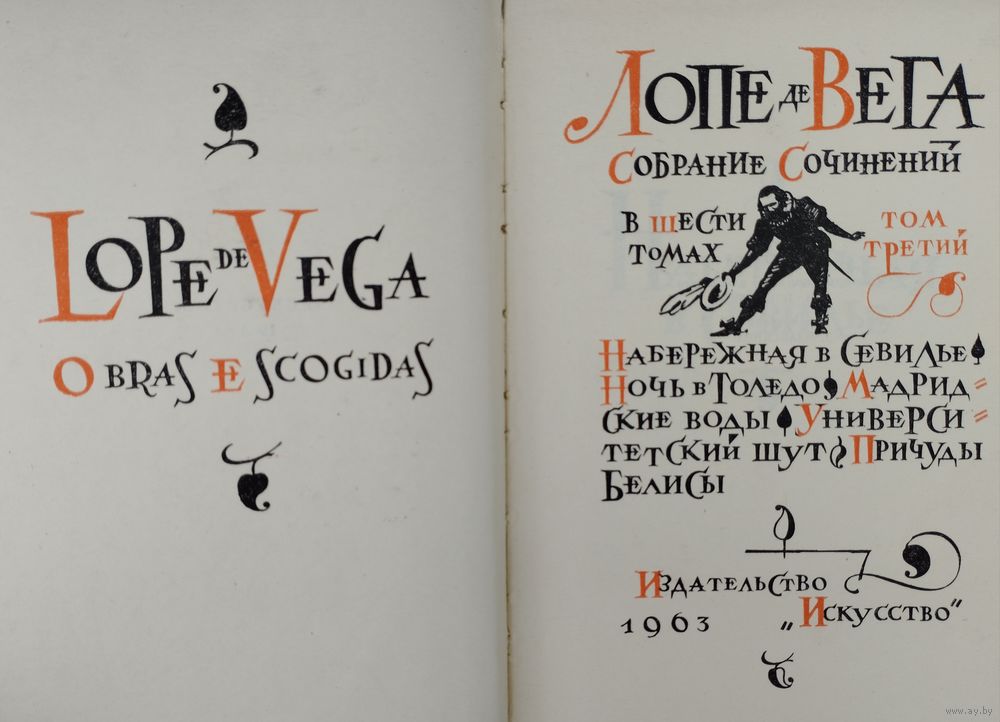 LOPE DE VEGA
OBRAS ESCOGIDAS
ЛОПЕ ДЕ ВЕГА
СОБРАНИЕ СОЧИНЕНИЙ
В ШЕСТИ
ТОМАХ
ТОМ
ТРЕТИЙ
НАБЕРЕЖНАЯ В СЕВИЛЬЕ
НОЧЬ В ТОЛЕДО МАДРИД=
СКИЕ ВОДЫ УНИВЕРСИ=
ТЕТСКИЙ ШУТ ПРИЧУДЫ
БЕЛИСЫ
ИЗДАТЕЛЬСТВО
1963 „ИСКУССТВО"
www.ay.by